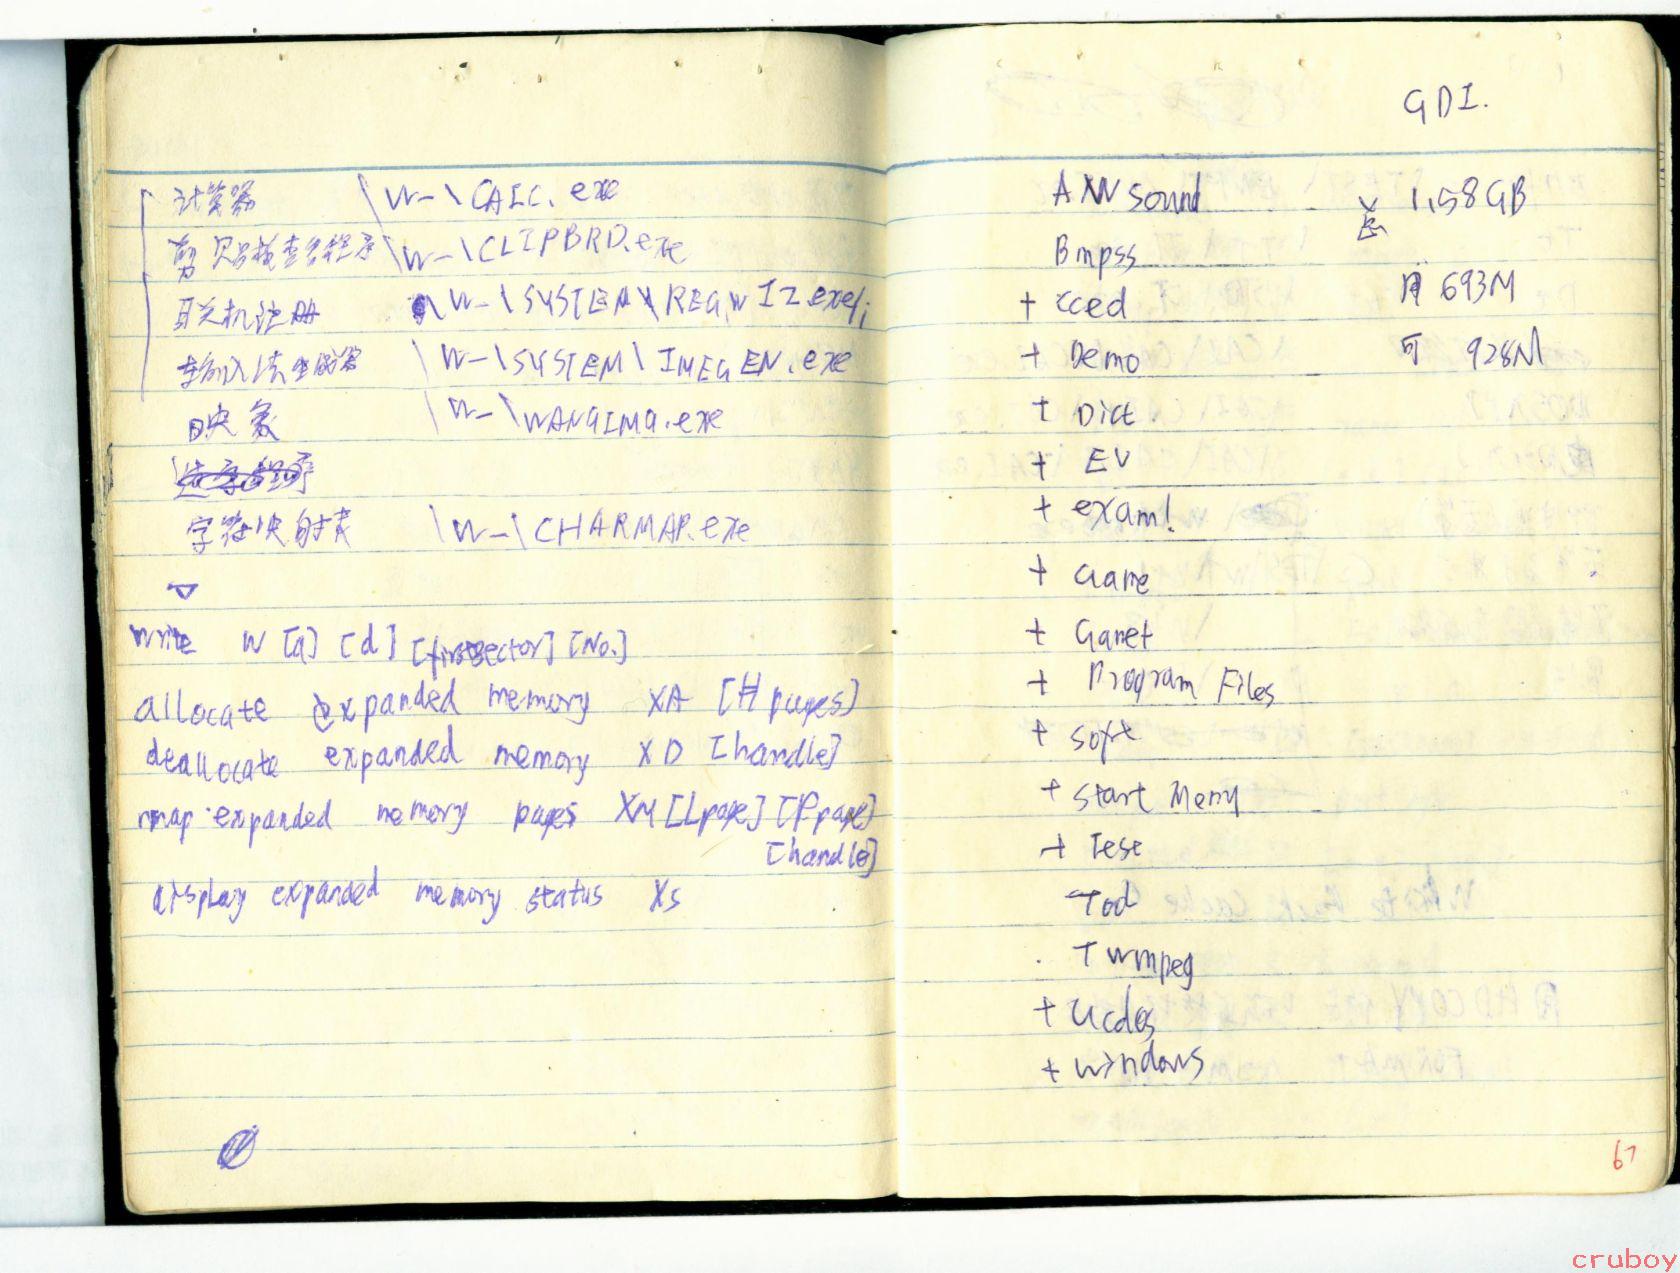 计算器 \W-\CALC.exe
剪贴板查看程序 \W-\CLIPBRD.exe
联机注册 \W-\SYSTEM\REGWIZ.exe/i
输入法生成器 \W-\SYSTEM\IMEGEN.exe
映象 \W-\WANGIMG.exe
造字程序
字符映射表 \W-\CHARMAP.exe
write W [a] [d] [firstsector] [No.]
allocate expanded memory XA [# pages]
deallocate expanded memory XD [handle]
map expanded memory pages XM [Lpage] [Ppage]
[handle]
display expanded memory status Xs
GDI.
sound 1.58GB
Bmpss
+ cced 用 693M
+ Demo 可 928M
+ Dict
+ EV
+ exam!
+ Game
+ Gamet
+ Program Files
+ soft
+ Start Menu
+ Test
Tod
Twmpeg
+ Ucdos
+ windows
67
cruboy